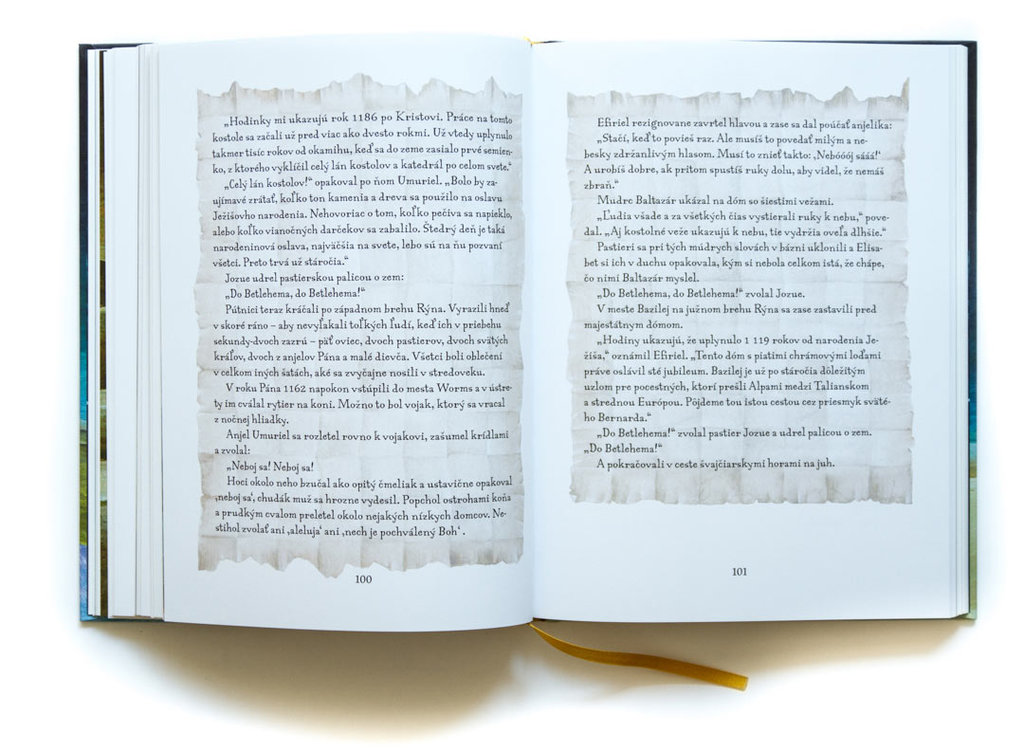 „Hodinky mi ukazujú rok 1186 po Kristovi. Práce na tomto
kostole sa začali už pred viac ako dvesto rokmi. Už vtedy uplynulo
takmer tisíc rokov od okamihu, keď sa do zeme zasialo prvé semien-
ko, z ktorého vyklíčil celý lán kostolov a katedrál po celom svete.“
„Celý lán kostolov!“ opakoval po ňom Umuriel. „Bolo by za-
ujímavé zrátať, koľko ton kamenia a dreva sa použilo na oslavu
Ježišovho narodenia. Nehovoriac o tom, koľko pečiva sa napieklo,
alebo koľko vianočných darčekov sa zabalilo. Štedrý deň je taká
narodeninová oslava, najväčšia na svete, lebo sú na ňu pozvaní
všetci. Preto trvá už stáročia.“
Jozue udrel pastierskou palicou o zem:
„Do Betlehema, do Betlehema!“
Pútnici teraz kráčali po západnom brehu Rýna. Vyrazili hneď
v skoré ráno – aby nevyľakali toľkých ľudí, keď ich v priebehu
sekundy-dvoch zazrú – päť oviec, dvoch pastierov, dvoch svätých
kráľov, dvoch z anjelov Pána a malé dievča. Všetci boli oblečení
v celkom iných šatách, aké sa zvyčajne nosili v stredoveku.
V roku Pána 1162 napokon vstúpili do mesta Worms a v ústre-
ty im cválal rytier na koni. Možno to bol vojak, ktorý sa vracal
z nočnej hliadky.
Anjel Umuriel sa rozletel rovno k vojakovi, zašumel krídlami
a zvolal:
„Neboj sa! Neboj sa!
Hoci okolo neho bzučal ako opitý čmeliak a ustavične opakoval
‚neboj sa‘, chudák muž sa hrozne vydesil. Popchol ostrohami koňa
a prudkým cvalom preletel okolo nejakých nízkych domcov. Ne-
stihol zvolať ani ‚aleluja‘ ani ‚nech je pochválený Boh‘ .
100
Efiriel rezignovane zavrtel hlavou a zase sa dal poúčať anjelika:
„Stačí, keď to povieš raz. Ale musíš to povedať milým a ne-
besky zdržanlivým hlasom. Musí to znieť takto: ‚Nebóóój sááá!‘
A urobíš dobre, ak pritom spustíš ruky dolu, aby videl, že nemáš
zbraň.“
Mudrc Baltazár ukázal na dóm so šiestimi vežami.
„Ľudia všade a za všetkých čias vystierali ruky k nebu,“ pove-
dal. „Aj kostolné veže ukazujú k nebu, tie vydržia oveľa dlhšie.“
Pastieri sa pri tých múdrych slovách v bázni uklonili a Elisa-
bet si ich v duchu opakovala, kým si nebola celkom istá, že chápe,
čo nimi Baltazár myslel.
„Do Betlehema, do Betlehema!“ zvolal Jozue.
V meste Bazilej na južnom brehu Rýna sa zase zastavili pred
majestátnym dómom.
„Hodiny ukazujú, že uplynulo 1 119 rokov od narodenia Je-
žiša,“ oznámil Efiriel. „Tento dóm s piatimi chrámovými loďami
práve oslávil sté jubileum. Bazilej je už po stáročia dôležitým
uzlom pre pocestných, ktorí prešli Alpami medzi Talianskom
a strednou Európou. Pôjdeme tou istou cestou cez priesmyk sväté-
ho Bernarda.“
„Do Betlehema!“ zvolal pastier Jozue a udrel palicou o zem.
„Do Betlehema!“
A pokračovali v ceste švajčiarskymi horami na juh.
101